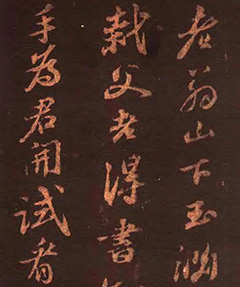 老翁山下玉渊
栽父老得書
手為君開試看